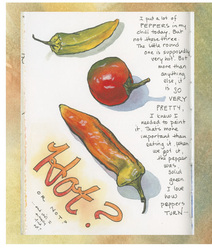 I put a lot of
PEPPERS in my
chili today. But
not those three
The little round
one is supposedly
very hot. But
more than
anything
else, it
is SO
VERY
PRETTY.
I knew I
needed to paint
it. That's more
important than
eating it. When
we got it,
the pepper
was
solid
green
I love
how
peppers
TURN-
Hot?
OR NOT?